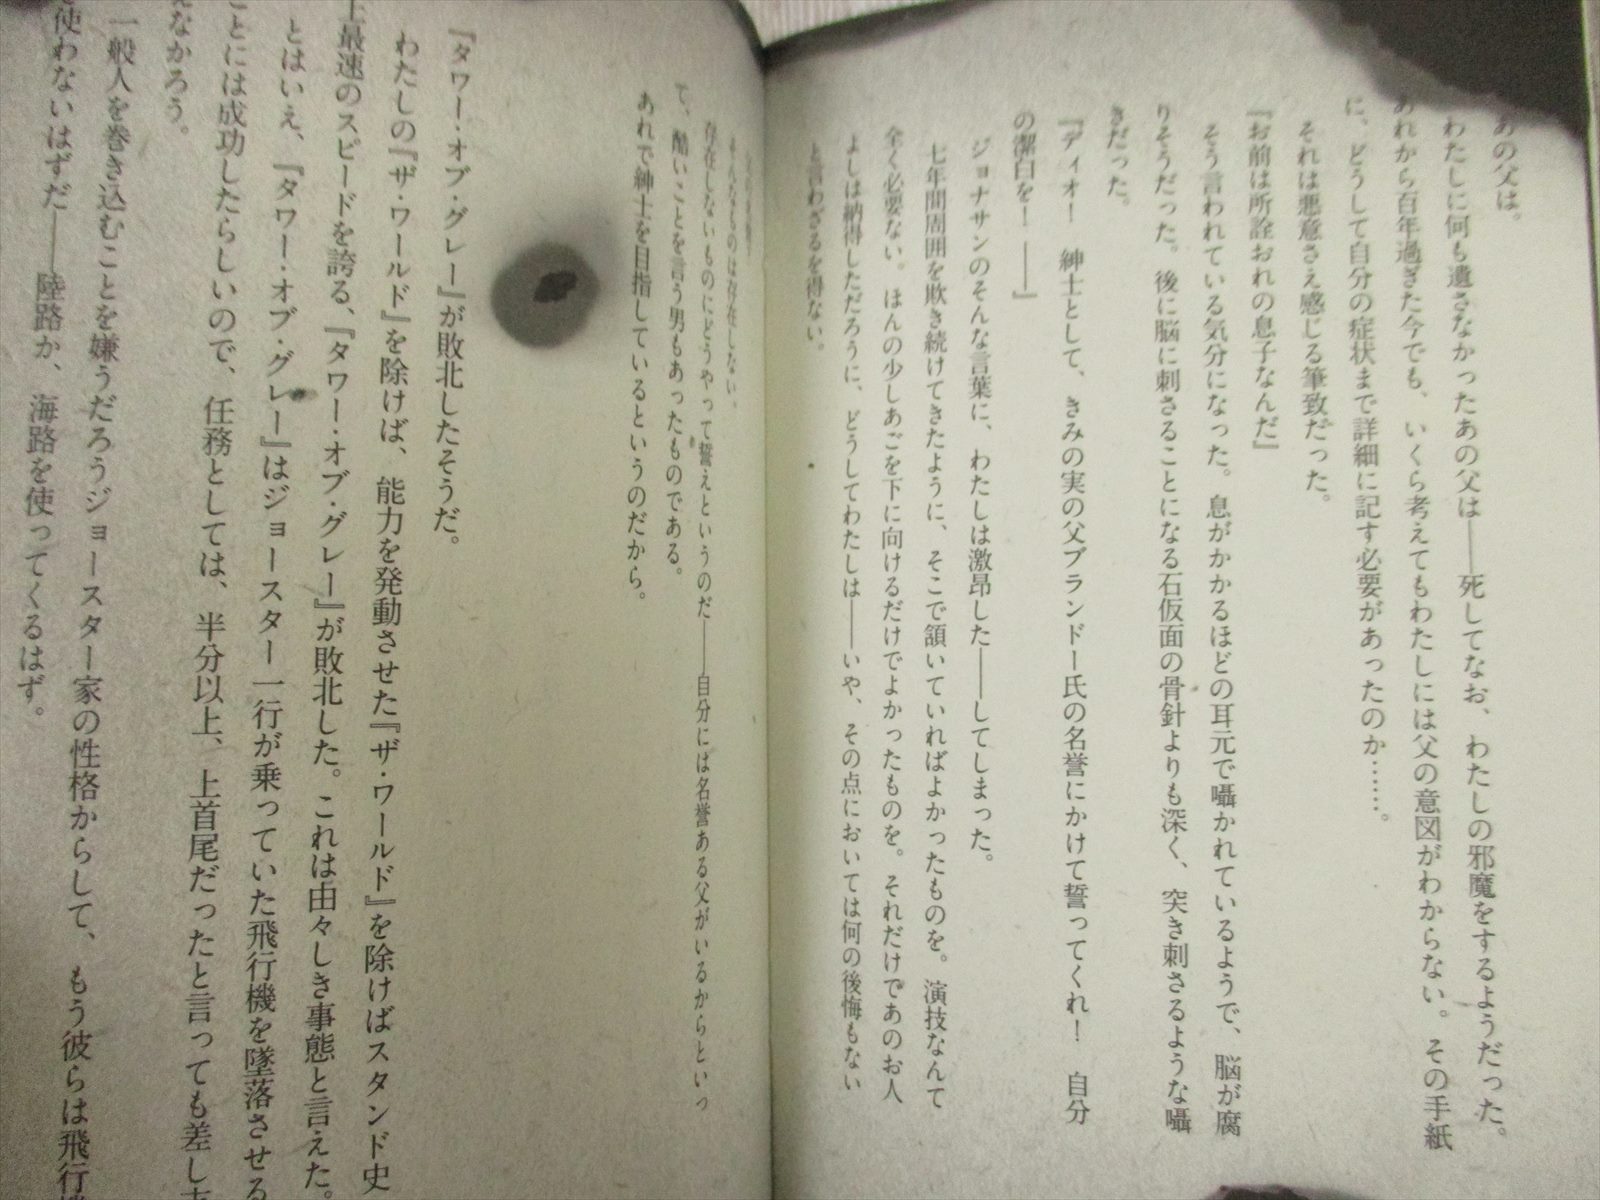 あの父は。
わたしに何も遺さなかったあの父は――死してなお、わたしの邪魔をするようだった。
あれから百年過ぎた今でも、いくら考えてもわたしには父の意図がわからない。その手紙
に、どうして自分の症状まで詳細に記す必要があったのか……。
それは悪意さえ感じる筆致だった。
『お前は所詮おれの息子なんだ』
そう言われている気分になった。息がかかるほどの耳元で囁かれているようで、脳が腐
りそうだった。後に脳に刺さることになる石仮面の骨針よりも深く、突き刺さるような囁
きだった。
『ディオ！　紳士として、きみの実の父ブランドー氏の名誉にかけて誓ってくれ！　自分
の潔白を！――』
ジョナサンのそんな言葉に、わたしは激昂した――してしまった。
七年間周囲を欺き続けてきたように、そこで頷いていればよかったものを。演技なんて
全く必要ない。ほんの少しあごを下に向けるだけでよかったものを。それだけであのお人
よしは納得しただろうに、どうしてわたしは――いや、その点においては何の後悔もない
と言わざるを得ない。
そんなものは存在しない。
存在しないものにどうやって誓えというのだ――自分には名誉ある父がいるからといっ
て、酷いことを言う男もあったものである。
あれで紳士を目指しているというのだから。
『タワー・オブ・グレー』が敗北したそうだ。
わたしの『ザ・ワールド』を除けば、能力を発動させた『ザ・ワールド』を除けばスタンド史
上最速のスピードを誇る、『タワー・オブ・グレー』が敗北した。これは由々しき事態と言えた。
とはいえ、『タワー・オブ・グレー』はジョースター一行が乗っていた飛行機を墜落させる
ことには成功したらしいので、任務としては、半分以上、上首尾だったと言っても差し
えなかろう。
一般人を巻き込むことを嫌うだろうジョースター家の性格からして、もう彼らは飛行
使わないはずだ――陸路か、海路を使ってくるはず。